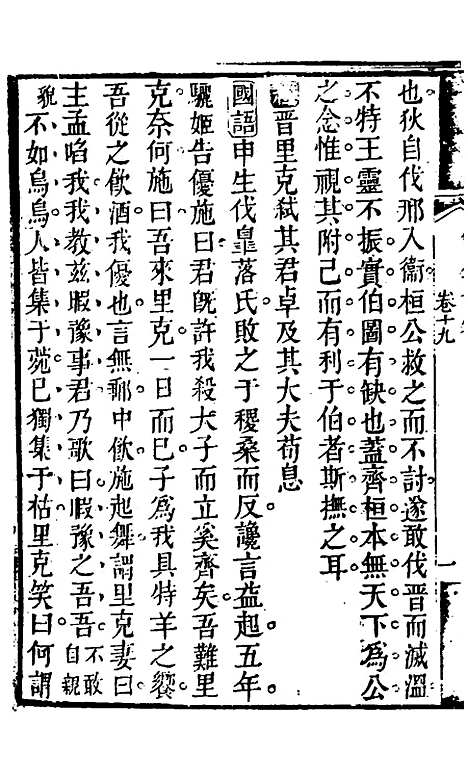 也狄自伐邢入衞桓公救之而不討遂敢伐晋而滅温
不特王靈不振實伯圖有缺也蓋齊桓本無天下爲公
之念惟視其附己而有利于伯者斯撫之耳
晋里克弑其君卓及其大夫荀息
國語申生伐臯落氏敗之于稷桑而反讒言益起五年
驪姬告優施曰君旣許我殺大子而立奚齊矣吾難里
克奈何施曰吾來里克一日而巳子爲我具特羊之饗
吾從之飲酒我優也言無郵中飲施起舞謂里克妻曰
主孟啗我我教兹暇豫事君乃歌曰暇豫之吾吾不敢自親
貌不如鳥烏人皆集于菀巳獨集于枯里克笑曰何謂
卷十九
一